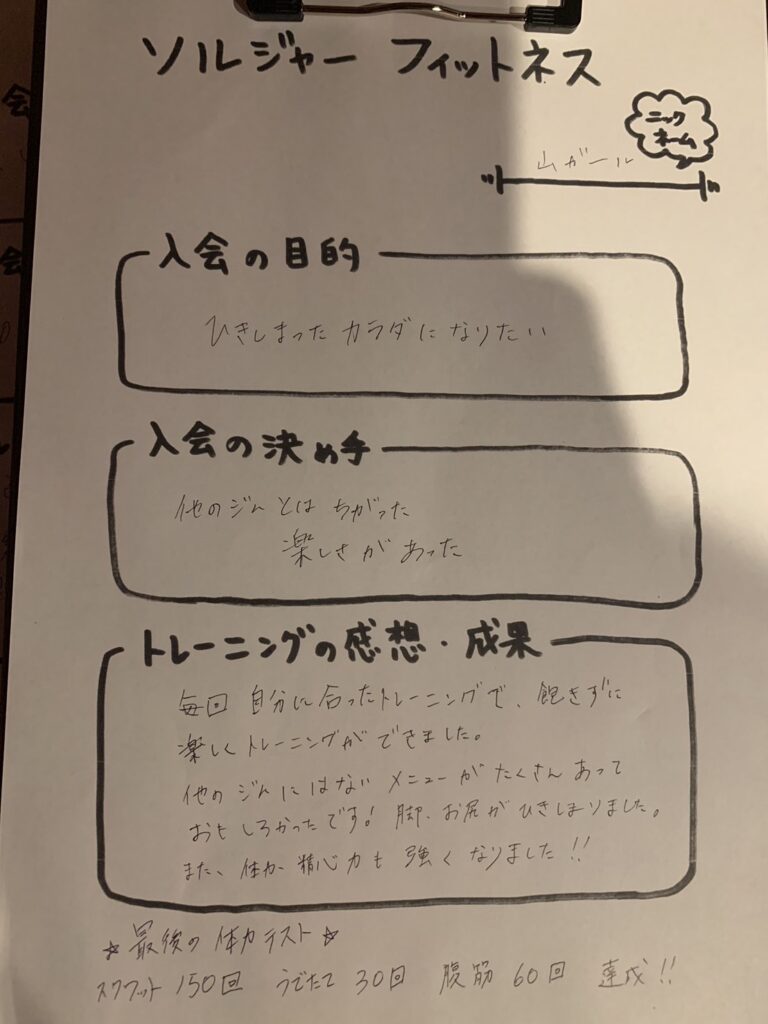 ソルジャー フィットネス
ニック
ネーム
山ガール
入会の目的
ひきしまった カラダに なりたい
入会の決め手
他のジムとは ちがった
楽しさが あった
トレーニングの感想・成果
毎回 自分に合ったトレーニングで、飽きずに
楽しくトレーニングが できました。
他の ジムにはない メニューが たくさん あって
おもしろかったです! 脚、お尻が ひきしまりました。
また、体力・精心力も 強く なりました!!
☆最後の 体力テスト☆
スクワット 150回 うでたて 30回 腹筋 60回 達成!!